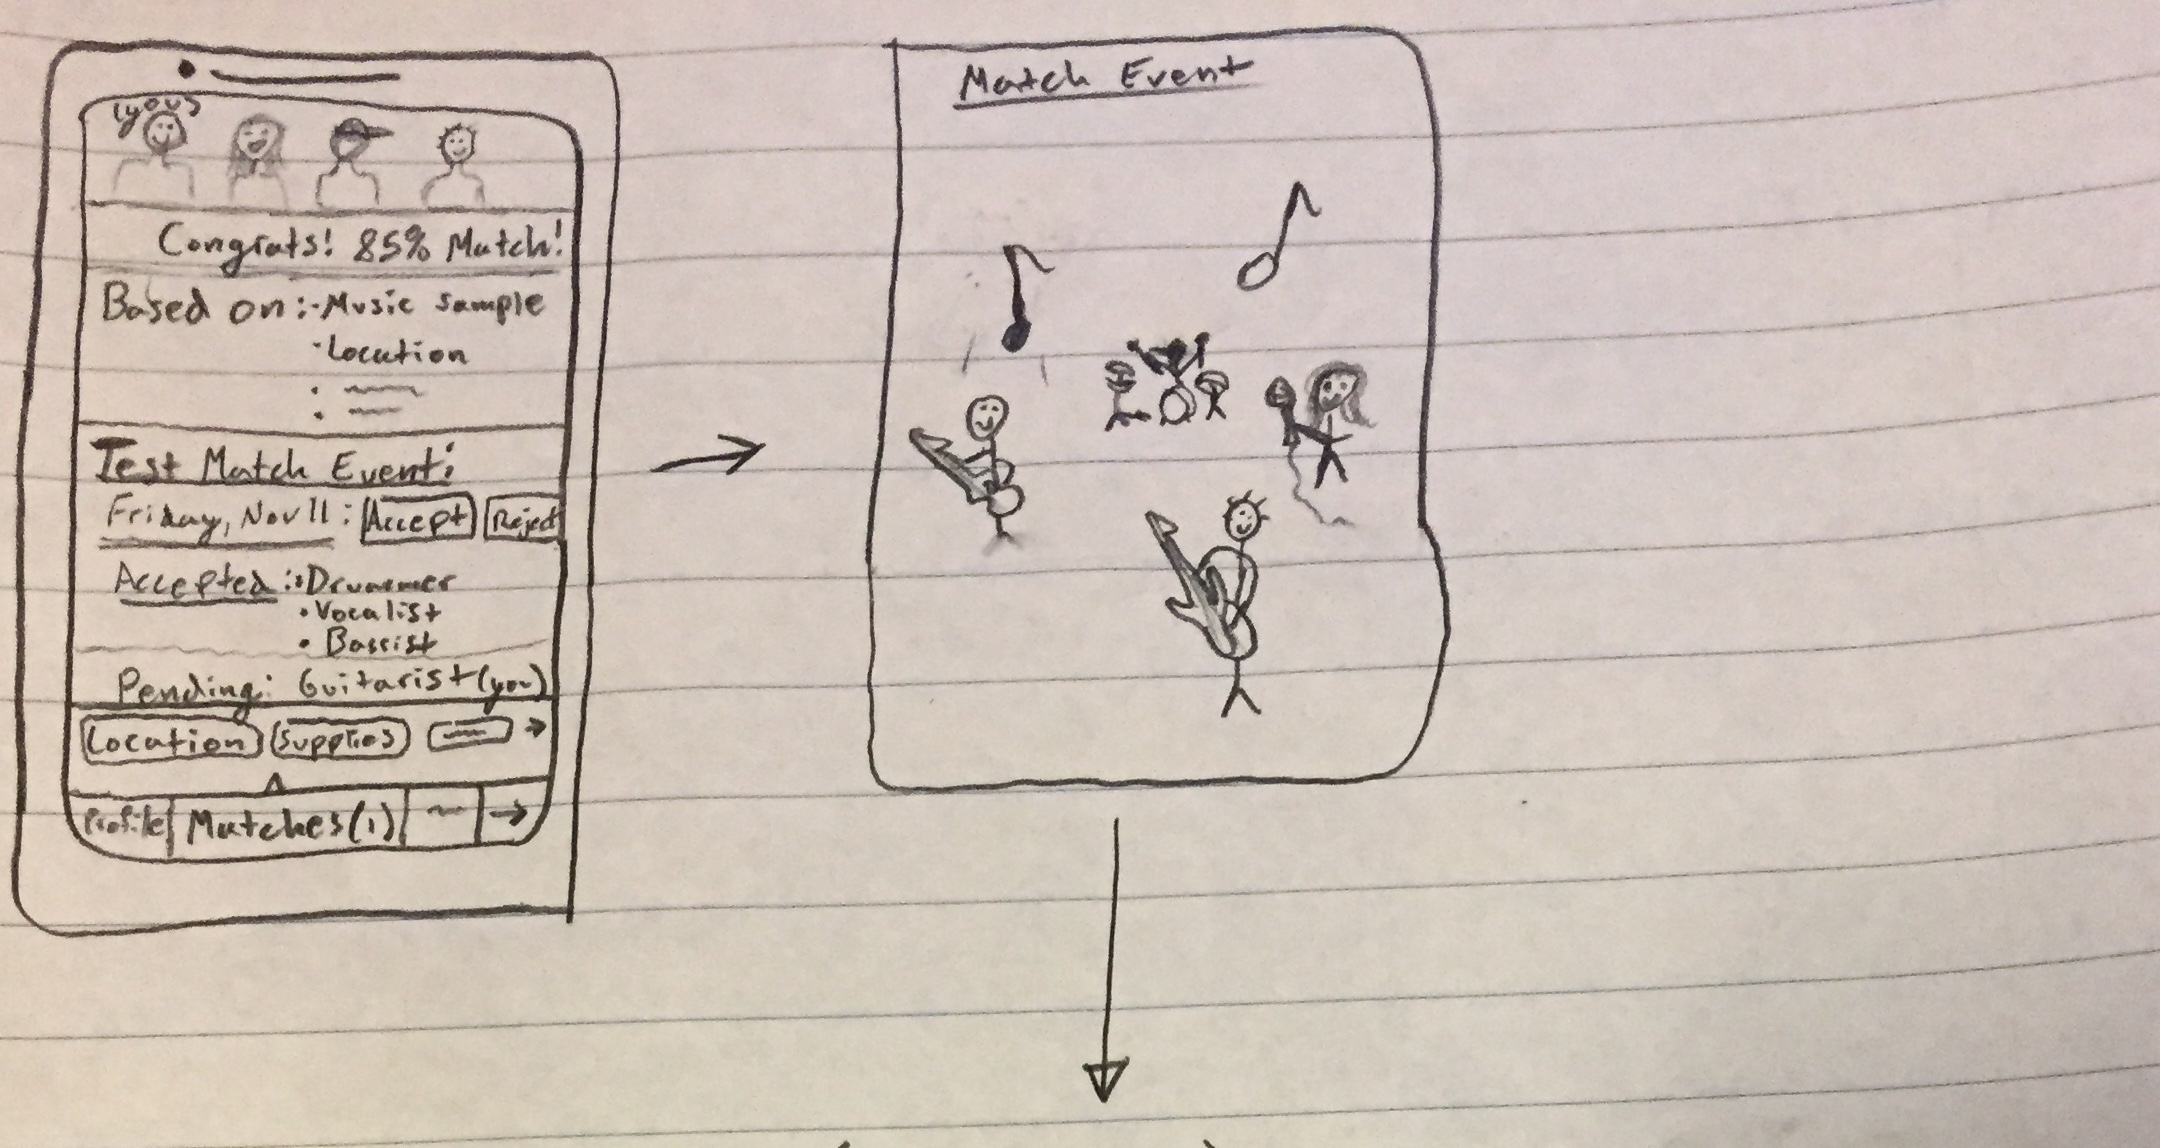 (you)
Congrats! 85% Match!
Based on: · Music sample
· Location
Test Match Event:
Friday, Nov 11: Accept Reject
Accepted: • Drummer
• Vocalist
• Bassist
Pending: Guitarist (you)
Location Supplies
Profile Matches (1)
Match Event